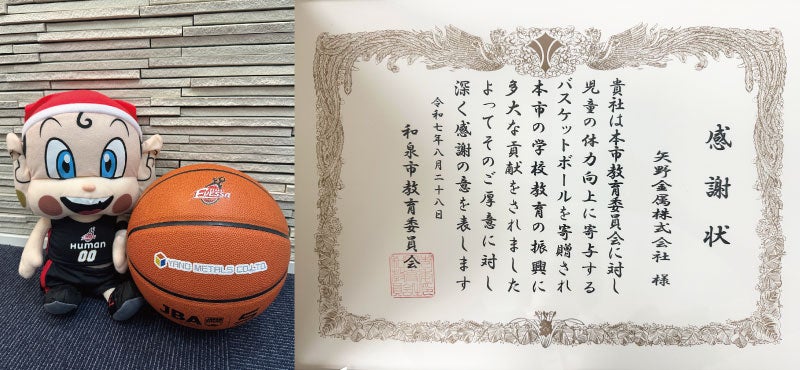 Human
00
EVESSA
YANO METALS CO.,LTD
JBA
感謝状
矢野金属株式会社 様
貴社は本市教育委員会に対し
児童の体力向上に寄与する
バスケットボールを寄贈され
本市の学校教育の振興に
多大な貢献をされました
よってそのご厚意に対し
深く感謝の意を表します
令和七年八月二十八日
和泉市教育委員会